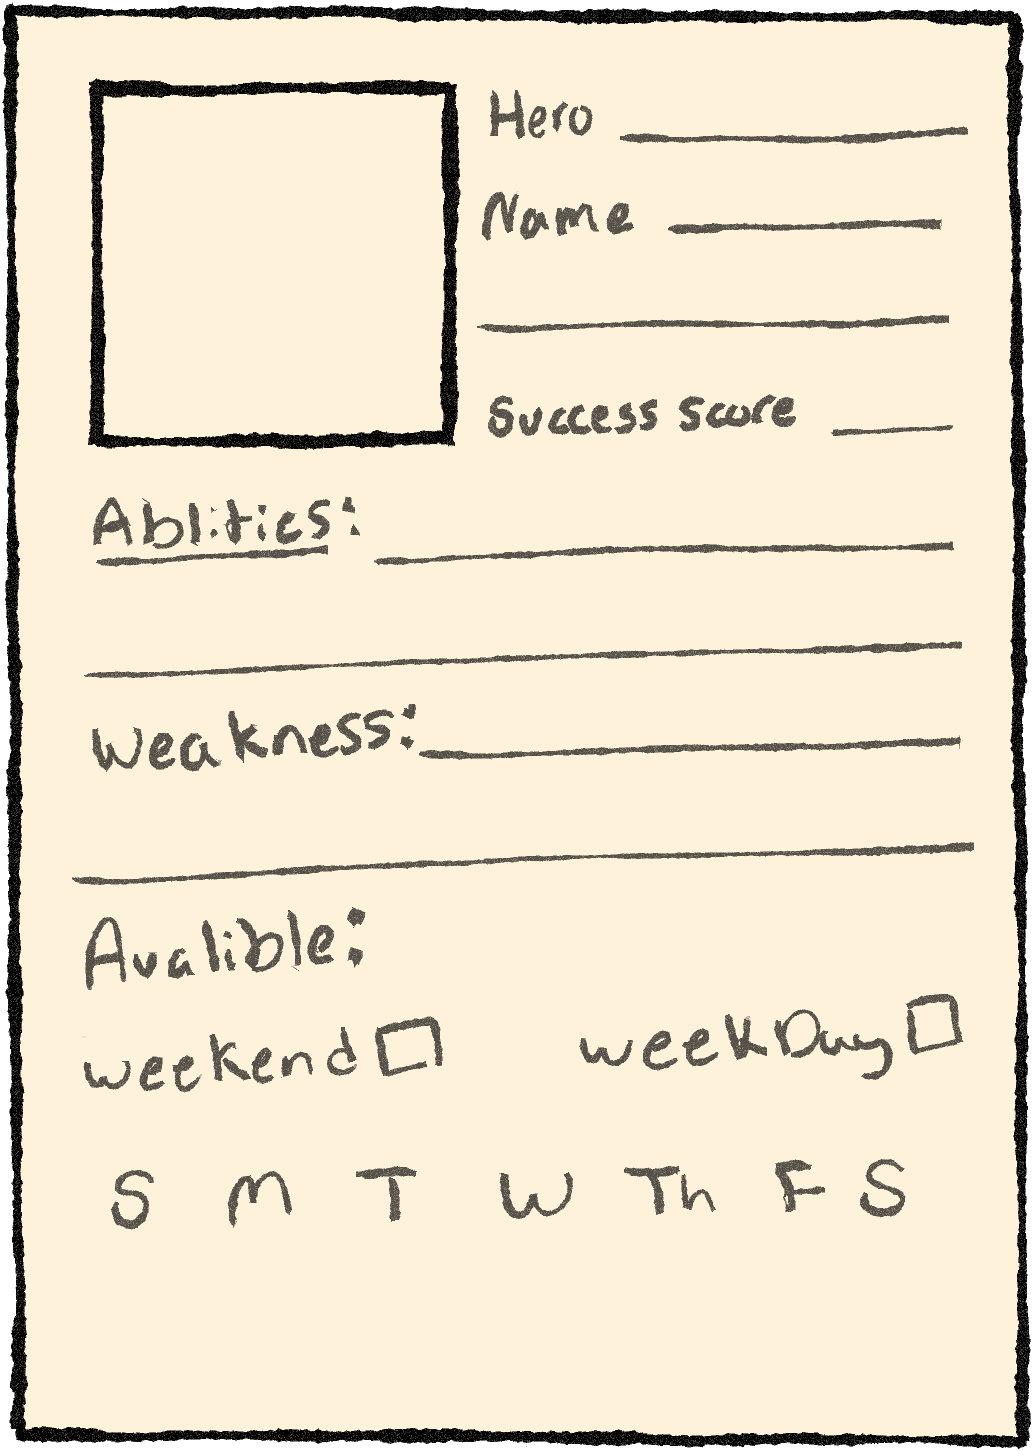 Hero
Name
Success score
Ablities:
Weakness:
Avalible:
weekend weekDay
S M T W Th F S